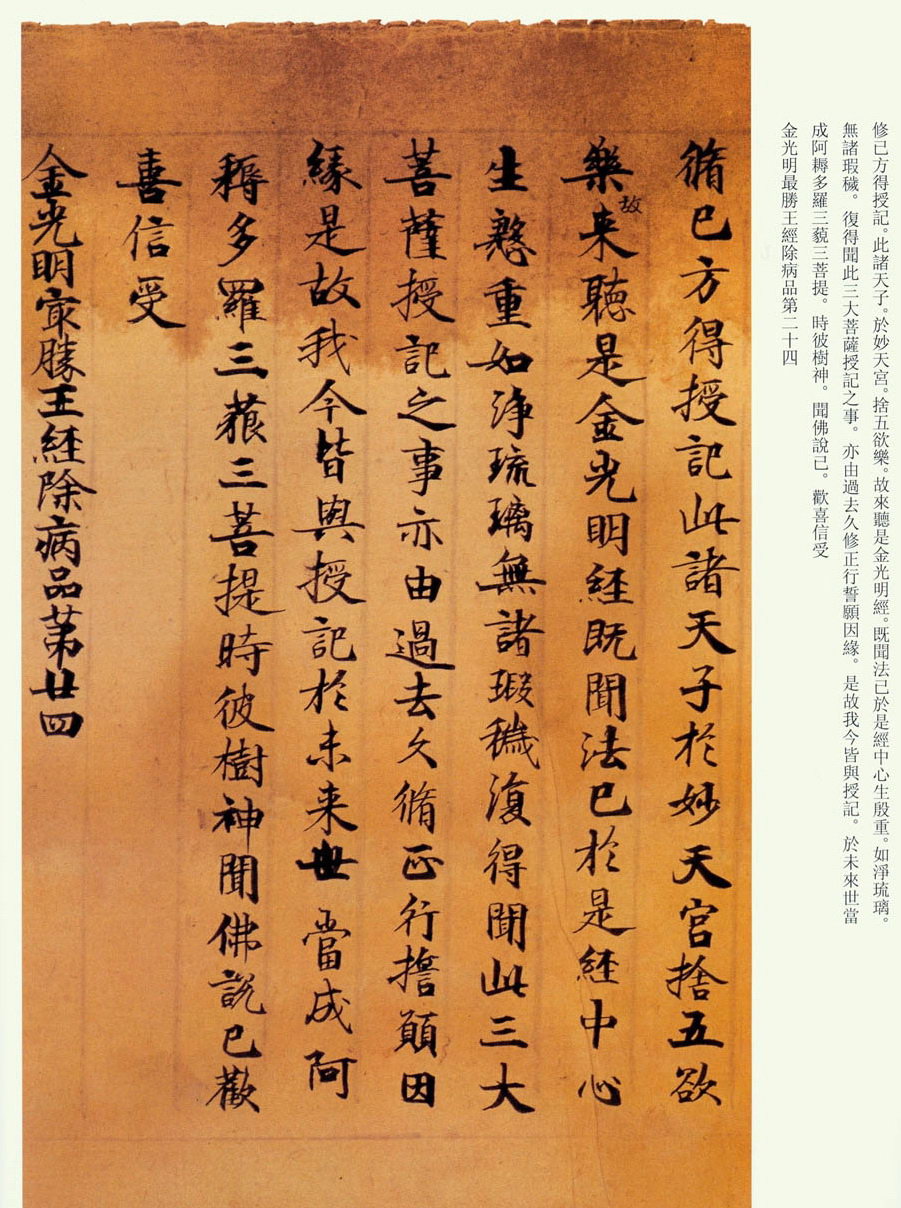 修已方得授記。此諸天子。於妙天宮。捨五欲樂。故來聽是金光明經。既聞法已於是經中心生殷重。如淨琉璃。
無諸瑕穢。復得聞此三大菩薩授記之事。亦由過去久修正行誓願因緣。是故我今皆與授記。於未來世當
成阿耨多羅三藐三菩提。時彼樹神。聞佛說已。歡喜信受
金光明最勝王經除病品第二十四
脩已方得授記此諸天子於妙天宮捨五欲
樂故来聽是金光明經既聞法已於是經中心
生慇重如淨琉璃無諸瑕穢復得聞此三大
菩薩授記之事亦由過去久脩正行誓願因
緣是故我今皆與授記於未来世當成阿
耨多羅三藐三菩提時彼樹神聞佛說已歡
喜信受
金光明冣勝王經除病品第廿四